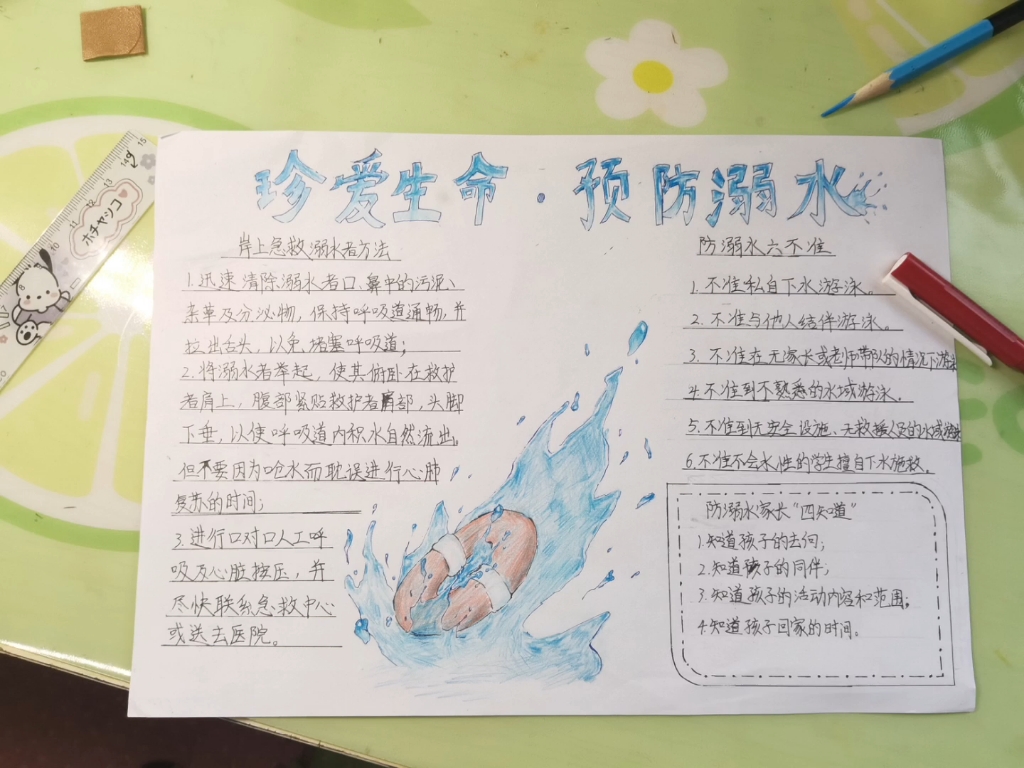 珍爱生命·预防溺水
岸上急救溺水者方法
1.迅速清除溺水者口、鼻中的污泥、
杂草及分泌物，保持呼吸道通畅，并
拉出舌头，以免堵塞呼吸道；
2.将溺水者举起，使其俯卧在救护
者肩上，腹部紧贴救护者肩部，头脚
下垂，以使呼吸道内积水自然流出，
但不要因为呛水而耽误进行心肺
复苏的时间；
3.进行口对口人工呼
吸及心脏按压，并
尽快联系急救中心
或送去医院。
防溺水六不准
1.不准私自下水游泳。
2.不准与他人结伴游泳。
3.不准在无家长或老师带队的情况下游泳
4.不准到不熟悉的水域游泳。
5.不准到无安全设施、无救援人员的水域游泳
6.不准不会水性的学生擅自下水施救。
防溺水家长"四知道"
1.知道孩子的去向；
2.知道孩子的同伴；
3.知道孩子的活动内容和范围；
4.知道孩子回家的时间。
ポチャッコ